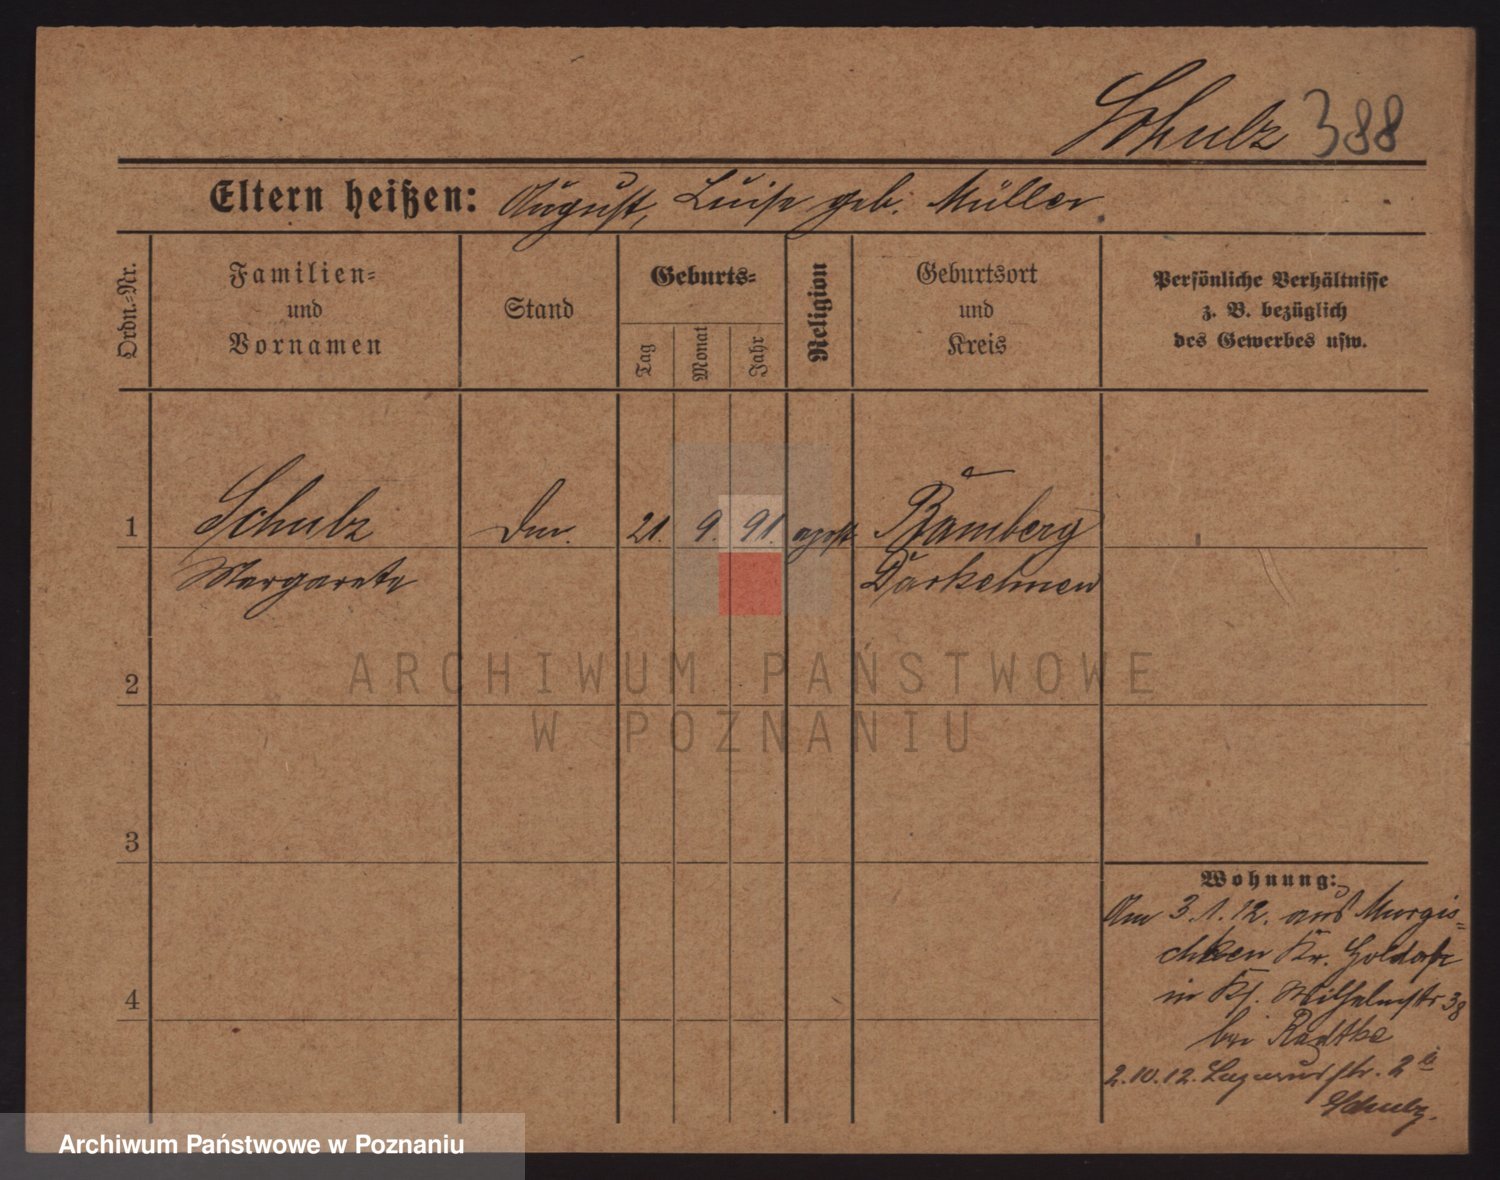 Schulz 388
Eltern heißen: August, Luise geb. Müller
Ordn.-Nr.
Familien-
und
Vornamen
Stand
Geburts-
Tag
Monat
Jahr
Religion
Geburtsort
und
Kreis
Persönliche Verhältnisse
z. B. bezüglich
des Gewerbes usw.
1 Schulz 21. 9. 91. Bamberg
Margarete Darkehmen
2
3
4
Wohnung:
Am 3.1.12. aus Murgis=
chken Kr. Goldap
in Kj. Wilhelmstr 38
bei Radtke
2.10.12. str. 2
Schulz.
ARCHIWUM PAŃSTWOWE
W POZNANIU
Archiwum Państwowe w Poznaniu